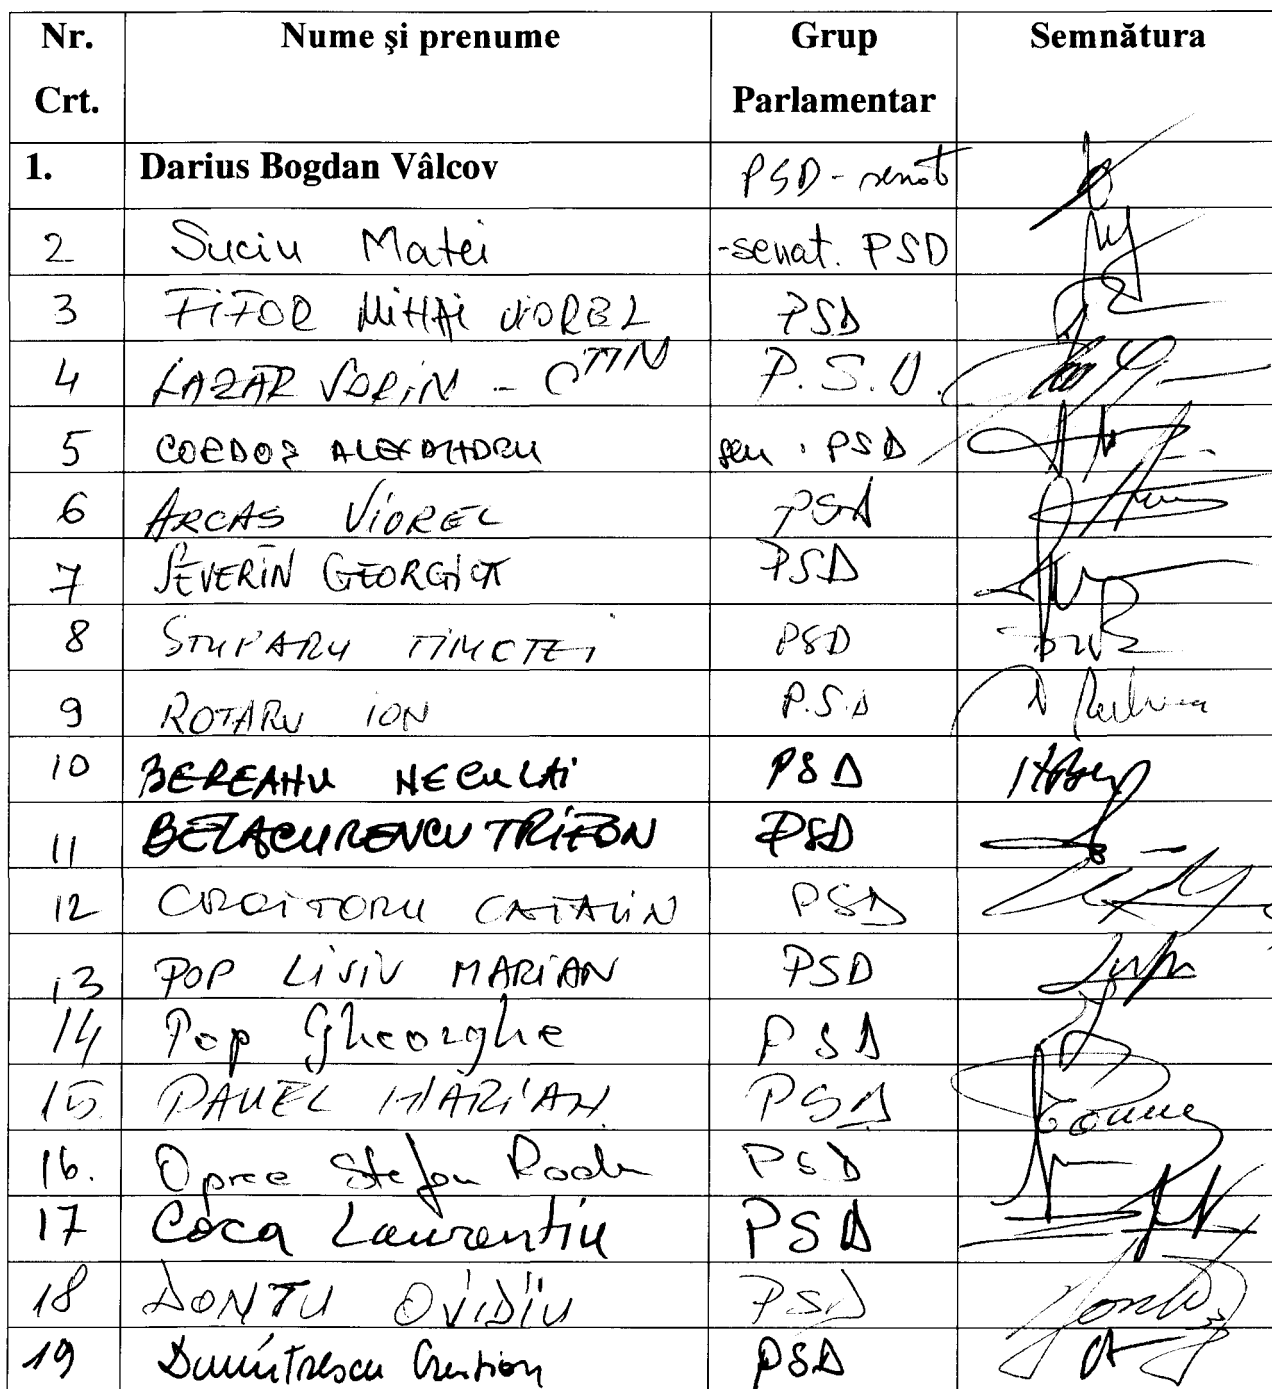 Nr. Crt. Nume şi prenume Grup Parlamentar Semnătura
1. Darius Bogdan Vâlcov PSD - senat
2 Suciu Matei -senat. PSD
3 FIFOR MIHAI VIOREL PSD
4 LAZĂR SORIN - CTTIN P.S.D.
5 CORDOȘ ALEXANDRU sen. PSD
6 ARCAȘ VIOREL PSD
7 SEVERIN GEORGICĂ PSD
8 STUPARU TIMOTEI PSD
9 ROTARU ION P.S.D
10 BEREANU NECULAI PSD
11 BELACURENCU TRIFON PSD
12 CROITORU CATALIN PSD
13 POP LIVIU MARIAN PSD
14 Pop Gheorghe PSD
15. PAVEL MARIAN PSD
16. Oprea Stefan Radu PSD
17 Coca Laurentiu PSD
18 DONTU OVIDIU PSD
19 Dumitrescu Cristian PSD